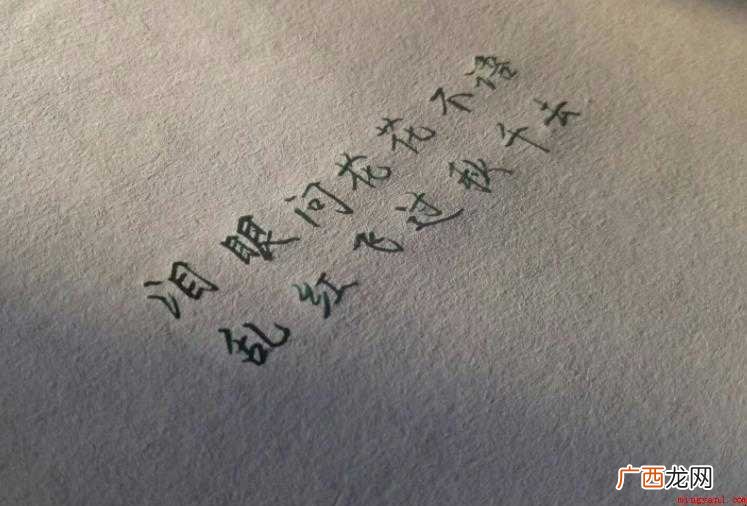 泪眼问花花不语
乱红飞过秋千去
广西龙网
mingyanl.com